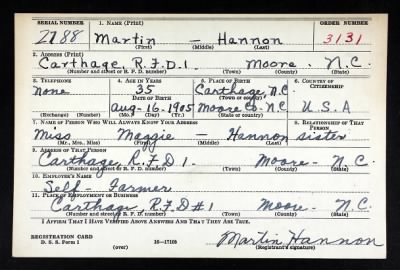 SERIAL NUMBER 1. NAME (Print) ORDER NUMBER
2788 Martin — Hannon 3131
(First) (Middle) (Last)
2. ADDRESS (Print)
Carthage, R.F.D.1. Moore. N.C.
(Number and street or R. F. D. number) (Town) (County) (State)
3. TELEPHONE 4. AGE IN YEARS 5. PLACE OF BIRTH 6. COUNTRY OF CITIZENSHIP
none 35 Carthage N.C.
DATE OF BIRTH (Town or county)
Aug-16-1905 Moore Co. N.C. U.S.A
(Exchange) (Number) (Mo.) (Day) (Yr.) (State or country)
7. NAME OF PERSON WHO WILL ALWAYS KNOW YOUR ADDRESS 8. RELATIONSHIP OF THAT PERSON
Miss Maggie — Hannon sister
(Mr., Mrs., Miss) (First) (Middle) (Last)
9. ADDRESS OF THAT PERSON
Carthage, R.F.D1. Moore- N.C.
(Number and street or R. F. D. number) (Town) (County) (State)
10. EMPLOYER'S NAME
Self- Farmer
11. PLACE OF EMPLOYMENT OR BUSINESS
Carthage, R.F.D#1 Moore- N.C.
(Number and street or R. F. D. number) (Town) (County) (State)
I AFFIRM THAT I HAVE VERIFIED ABOVE ANSWERS AND THAT THEY ARE TRUE.
REGISTRATION CARD
D. S. S. Form 1 (over) 16—17105 Martin Hannon
(Registrant's signature)